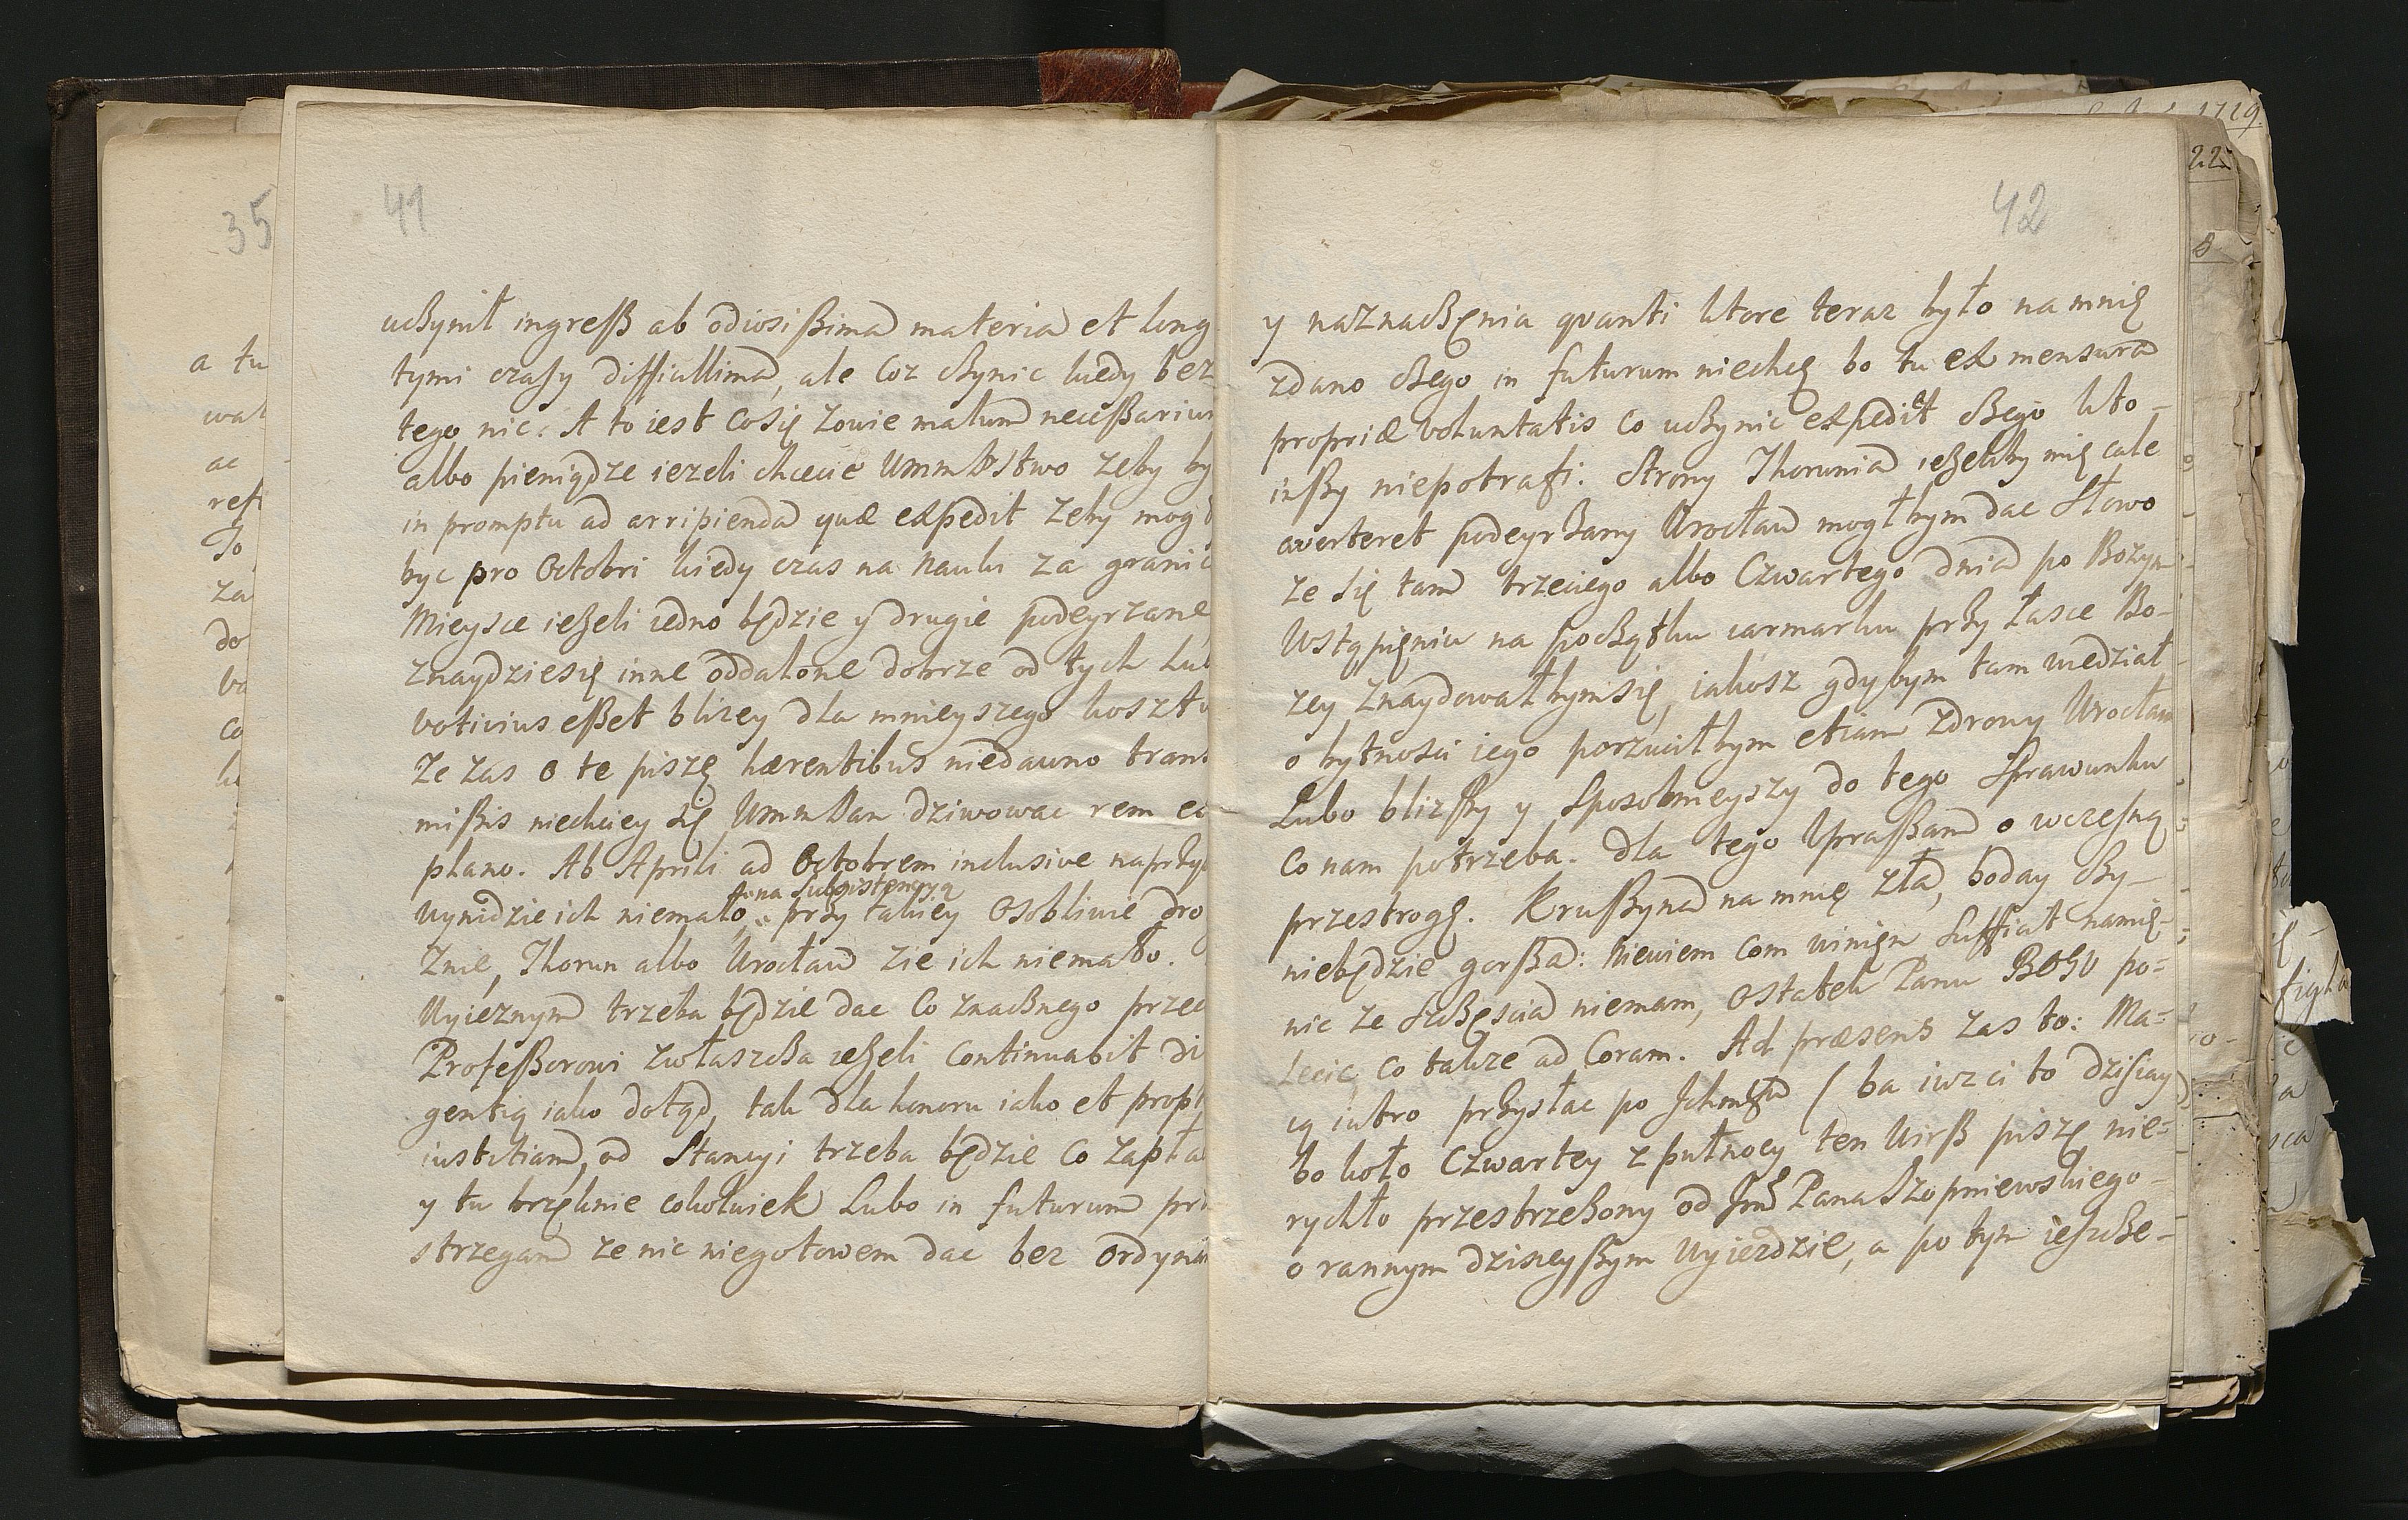 35
a tu
wal
ac
refi
To
za
do
co
41
uczynił ingreß ab odiosißima materia et long
tymi czasy difficillima, ale coz czynic kiedy bez
tego nic. A to iest co się zowie malum necessarium
albo pieniądze iezeli chcecie WmmPstwo zeby by
in promptu ad arripienda quæ expedit zeby mogł
byc pro Octobri kiedy czas na nauki za granic
Mieysce ieżeli iedno będzie y drugie podeyrzane,
znaydziesię inne oddalone dobrze od tych lub
votivius eßet blizey dla mnieyszego kosztu
Ze zas o te piszę hærentibus niedawno trans
mißis niechciey się WmmPan dziwowac rem ex
plano. Ab Aprili ad Octobrem inclusive naprzyk
na subsistencyą
wynidzie ich niemało, przy takiey osobliwie dro
znie, Thorun albo Wrocław zie ich niemało.
Wyieznym trzeba będzie dac co znacznego przed
Profeßorowi zwłaszcza ieżeli continuabit di
gentią iako dotąd, tak dla honoru iako et propt
iustitiam, od Stancyi trzeba będzie co zapła
y tu brzęknie cokolwiek Lubo in futurum prz
strzegam ze nic niegotowem dac bez ordyna
42
y naznaczęnia quanti ktore teraz było na mnię
zdano czego in futurum niechcę bo tu ex mensura
propriæ voluntatis co uczynic expediet czego kto-
inszy niepotrafi. Strony Thorunia ieżeliby mię cale
averteret podeyrzany Wrocław mogłbym dac Słowo
ze się tam trzeciego albo Czwartego dnia po Bożym
Wstąpięniu na początku iarmarku przy łasce Bo-
zey znaydowałbym się, iakosz gdybym tam wiedział
o bytnosci iego porzuciłbym etiam zdrowy Wrocław
Lubo bliższy y sposobnieyszy do tego sprawunku
co nam potrzeba. Dla tego Upraßam o wczesną
przestrogę. Krußyna na mnię zła, boday czy-
niebędzie gorßa: Niewiem com winięn sufficit namię-
nic ze szczęscia niemam, ostatek Panu BOGU po=
lecic, co takze ad Coram. Ad præsens zas to: Ma=
ią iutro przysłac po Ichmści (ba iuz ci to dzisiay)
bo koło Czwartey z pułnocy ten Wirß piszę nie=
rychło przestrzeżony od Jmć Pana Szopniewskiego-
o rannym dzisieyßym Wyiezdzie, a po tym ieszcze-
1729
22